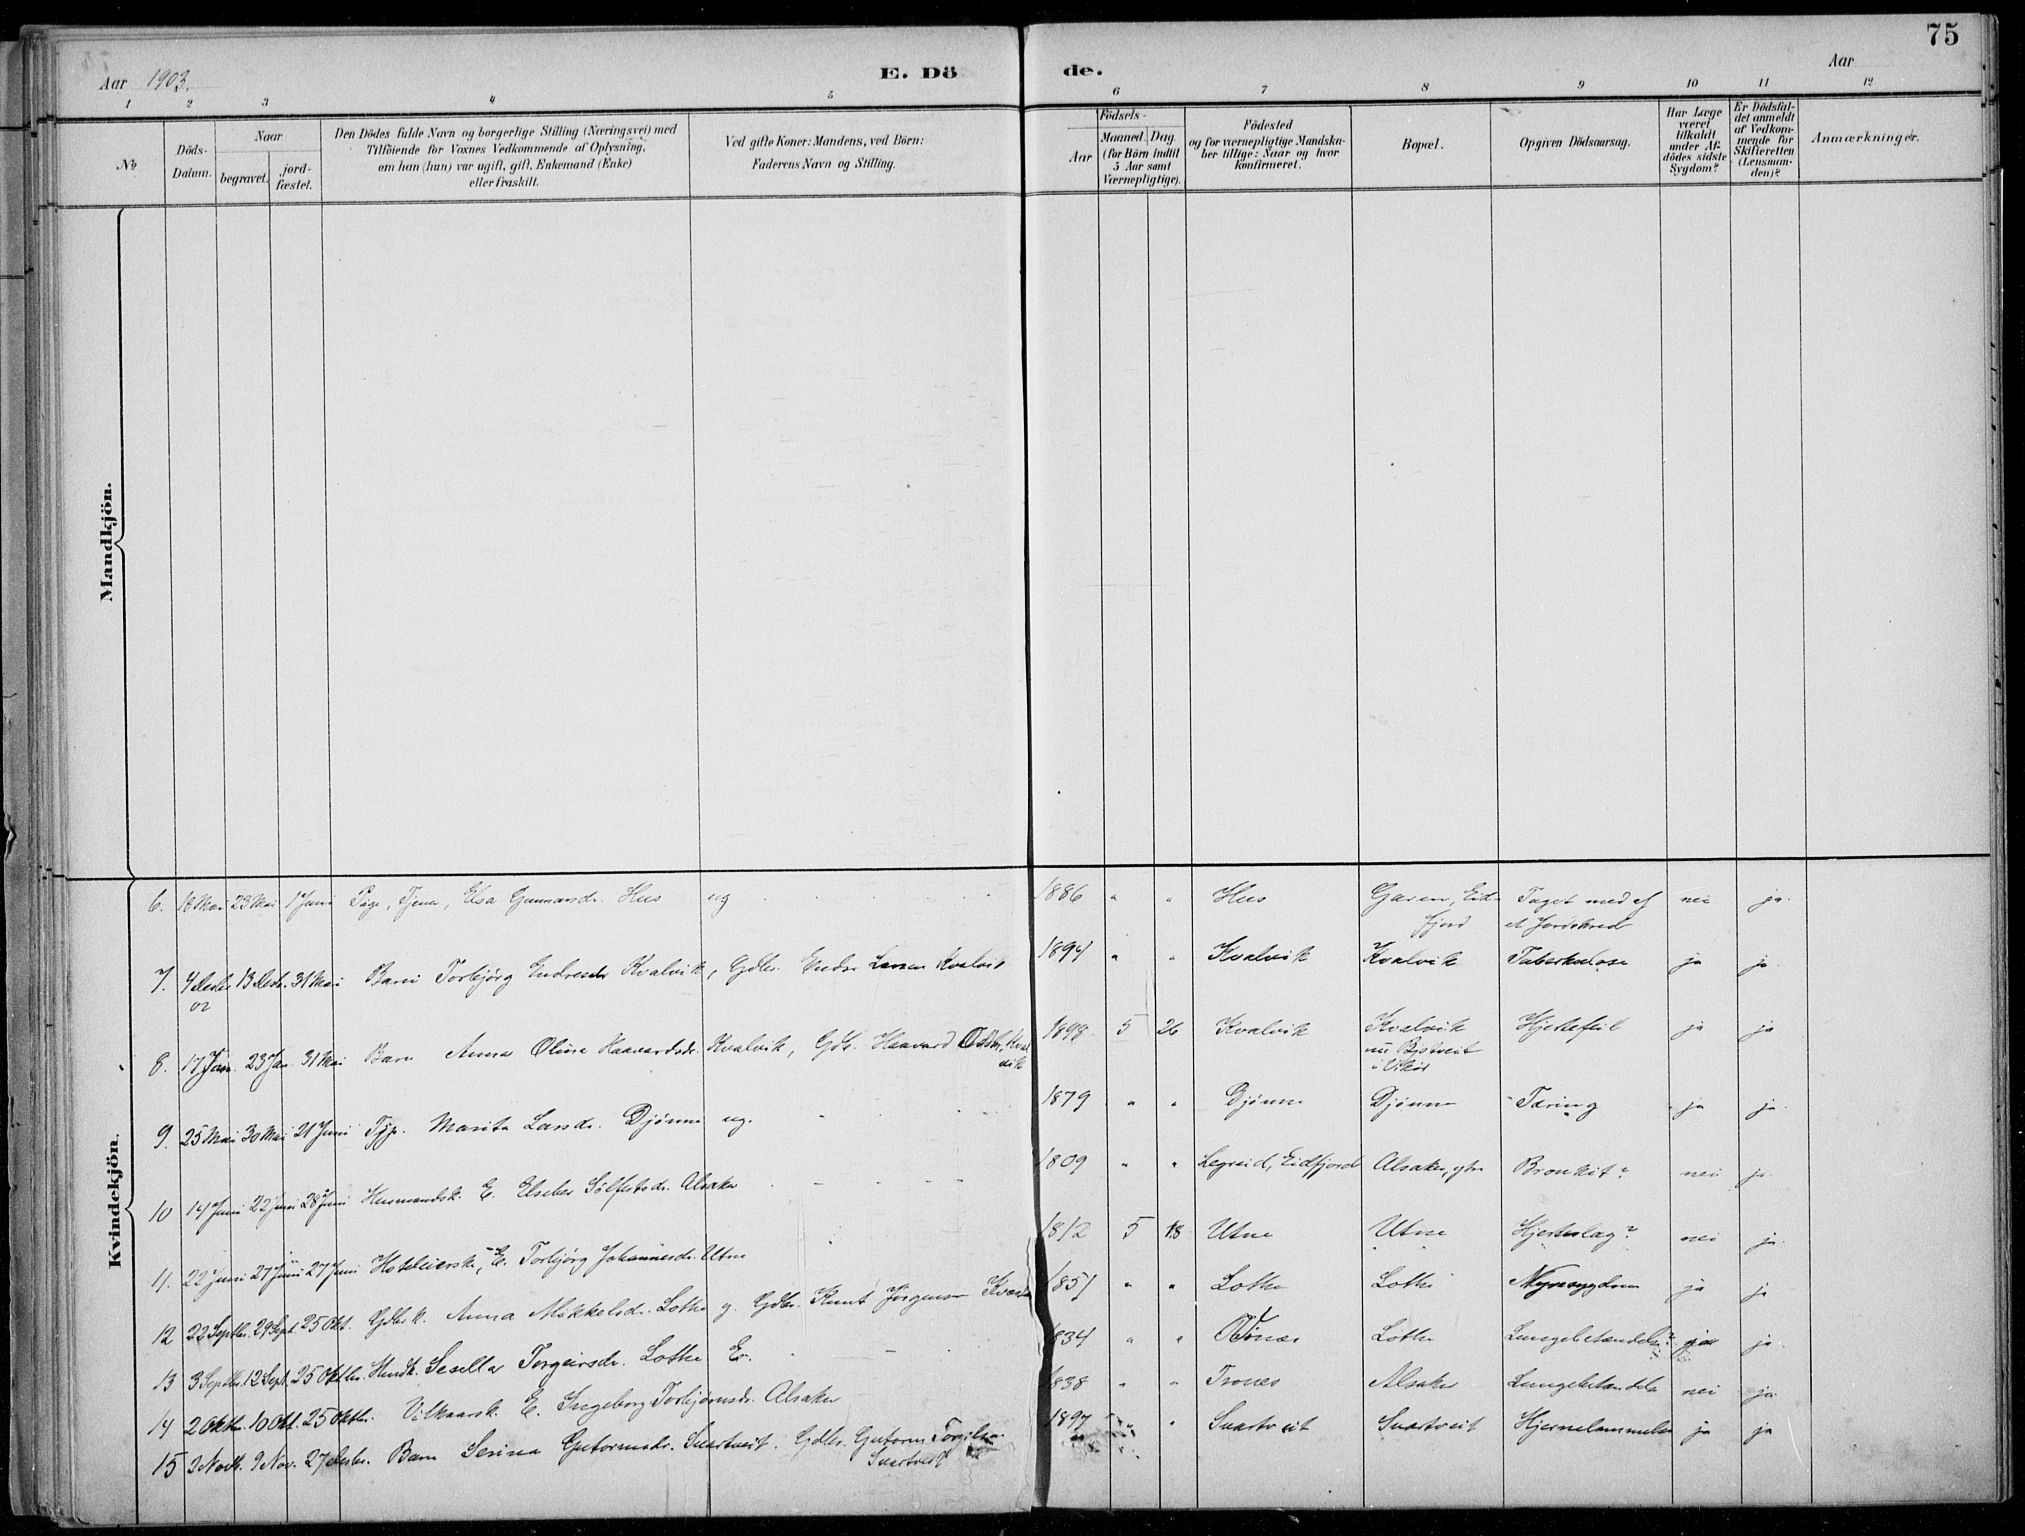 75
Aar 1903.
E. Dö
de.
Aar
1 2 3 4 5 6 7 8 9 10 11 12
No
Döds-Datum.
Naar
begravet.
jord-fæstet.
Den Dödes fulde Navn og borgerlige Stilling (Næringsvei) med
Tilföiende for Voxnes Vedkommende af Oplysning,
om han (hun) var ugift, gift, Enkemand (Enke)
eller fraskilt.
Ved gifte Koner: Mandens, ved Börn:
Faderens Navn og Stilling.
Födsels-
Aar
Maaned. Dag.
(for Börn indtil
5 Aar samt
Værnepligtige).
Födested
og for værnepligtige Mandska-
ber tillige: Naar og hvor
konfirmeret.
Bopæl.
Opgiven Dödsaarsag.
Har Læge
været
tilkaldt
under Af-
dödes sidste
Sygdom?
Er Dödsfal-
det anmeldt
af Vedkom-
mende for
Skifteretten
(Lensman-
den)?
Anmærkninger.
Mandkjön.
Kvindekjön.
6. 18 Mai 23 Mai 1 Juni Pige, Tjener, Elsa Gunnarsdr. Hus ug 1886 " " Hus Garen, Eid- Taget med af nei ja.
fjord et Jordskred
7. 4 Desbr 13 Desbr. 31 Mai Barn Torbjørg Endresdr Kvalvik, Gdbr. Endre Larsen Kvalvik 1894 " " Kvalvik Kvalvik Tuberkulose ja ja.
02
8. 17 Jan. 23 Jan. 31 Mai Barn Anna Olina Haavardsdr. Kvalvik, Gdbr. Haavard Kval- 1898 5 26 Kvalvik Kvalvik Hjertefeil ja ja
vik
nu
i Vikør
9. 25 Mai 30 Mai 21 Juni Pige. Marita Larsdr. Djønne ug. 1879 " " Djønne Djønne Tæring ja ja.
10 14 Juni 22 Juni 28 Juni Husmandsk. E. Elsebet Sølfestsdr. Alsaker 1809 " " Legreid, Eidfjord Alsaker, ytre Bronkit? nei ja.
11. 22 Juni 27 Juni 27 Juni Hoteleierske, E. Torbjørg Johannesdr. Utne 1812 5 18 Utne Utne Hjerteslag? nei ja.
12 22 Septbr. 29 Sept. 25 Okt. Gdbr. k. Anna Mikkelsdr. Lothe g. Gdbr. Knut Jørgensen 1851 " " Lothe Lothe Nyresygdom ja ja
13 3 Septbr. 12 Sept. 25 Oktbr. Sesella Torgeirsdr. Lothe E. 1834 " " Lothe Lungebetændelse? ja ja.
14 2 Oktbr. 10 Okt. 25 Oktbr. Vilkaarsk. E. Ingeborg Torbjørnsdr. Alsaker 1838 " " Trones Alsaker Lungebetændelse nei ja.
15 2 Novbr. 9 Nov. 27 Desbr. Barn Serina Gutormsdr. Svartveit. Gdbr. Gutorm Torgilsen 1897 " " Svartveit Svartveit ja ja
Svartveit